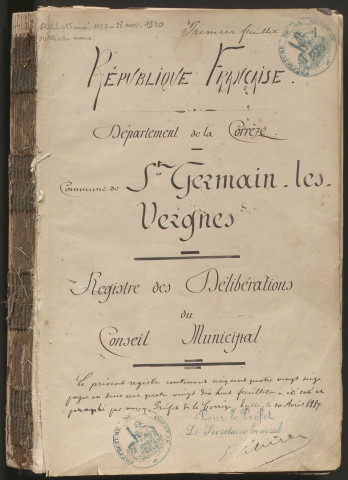 Premier feuillet
République Française.
Département de la Corrèze
Commune de St Germain-les-
Vergnes
Registre des Délibérations
du
Conseil Municipal
Le présent registre contenant cinq cent quatre vingt seize
pages ou deux cent quatre vingt dix huit feuillets a été coté et
paraphé par nous, Préfet de la Corrèze. Tulle, le 20 Avril 1887
Pour le Préfet
Le Secrétaire Général